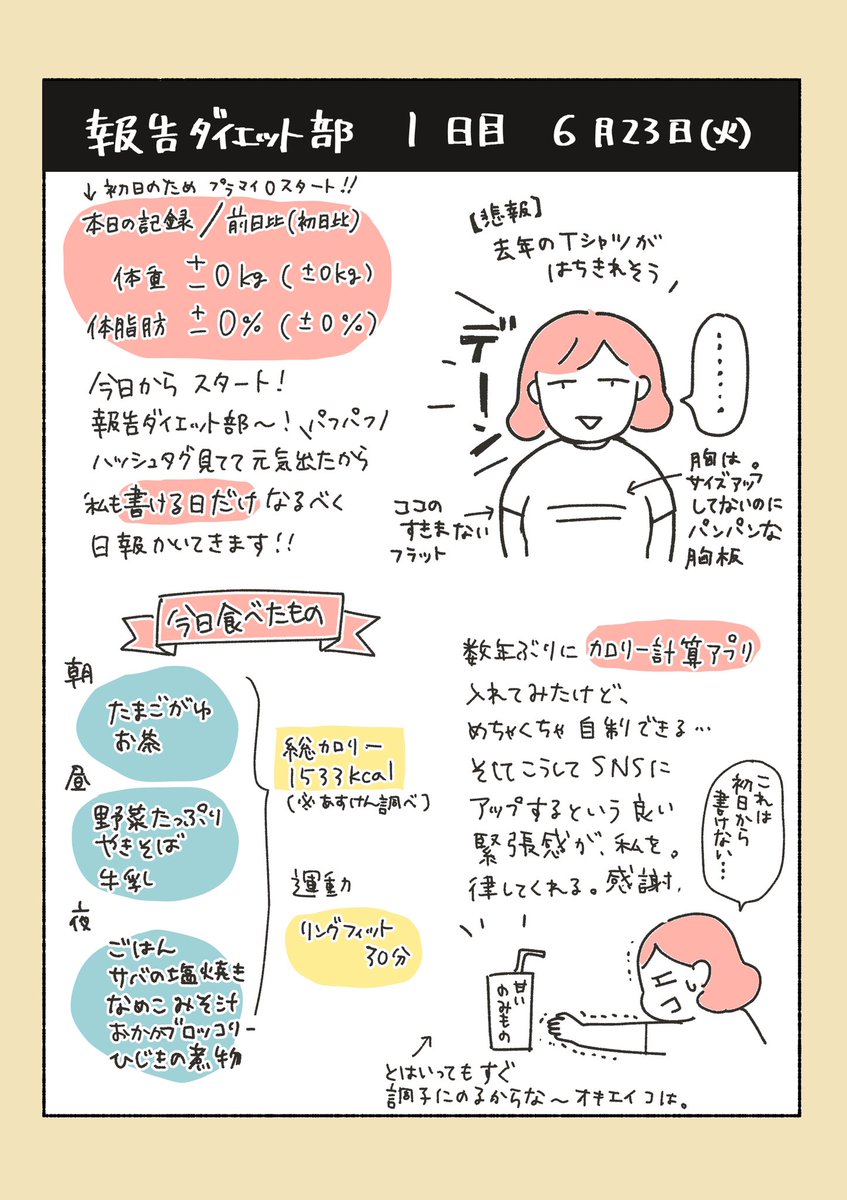 報告ダイエット部 1日目 6月23日(火)
↓初日のため プラマイ0スタート!!
本日の記録/前日比(初日比)
体重 ±0kg (±0kg)
体脂肪 ±0% (±0%)
今日から スタート!
報告ダイエット部〜! パフパフ
ハッシュタグ見てて元気出たから
私も書ける日だけ なるべく
日報かいてきます!!
【悲報】
去年のTシャツが
はちきれそう
デーン
………
ココの
すきまない
フラット
胸は
サイズアップ
してないのに
パンパンな
胸板
今日食べたもの
朝
たまごがゆ
お茶
昼
野菜たっぷり
やきそば
牛乳
夜
ごはん
サバの塩焼き
なめこみそ汁
おかかブロッコリー
ひじきの煮物
総カロリー
1533kcal
(※あすけん調べ)
運動
リングフィット
30分
数年ぶりに カロリー計算アプリ
入れてみたけど、
めちゃくちゃ 自制できる…
そしてこうして SNSに
アップするという 良い
緊張感が、私を。
律してくれる。感謝。
これは
初日から
書けない…
甘い
のみもの
とはいっても すぐ
調子にのるからな〜オキエイコは。